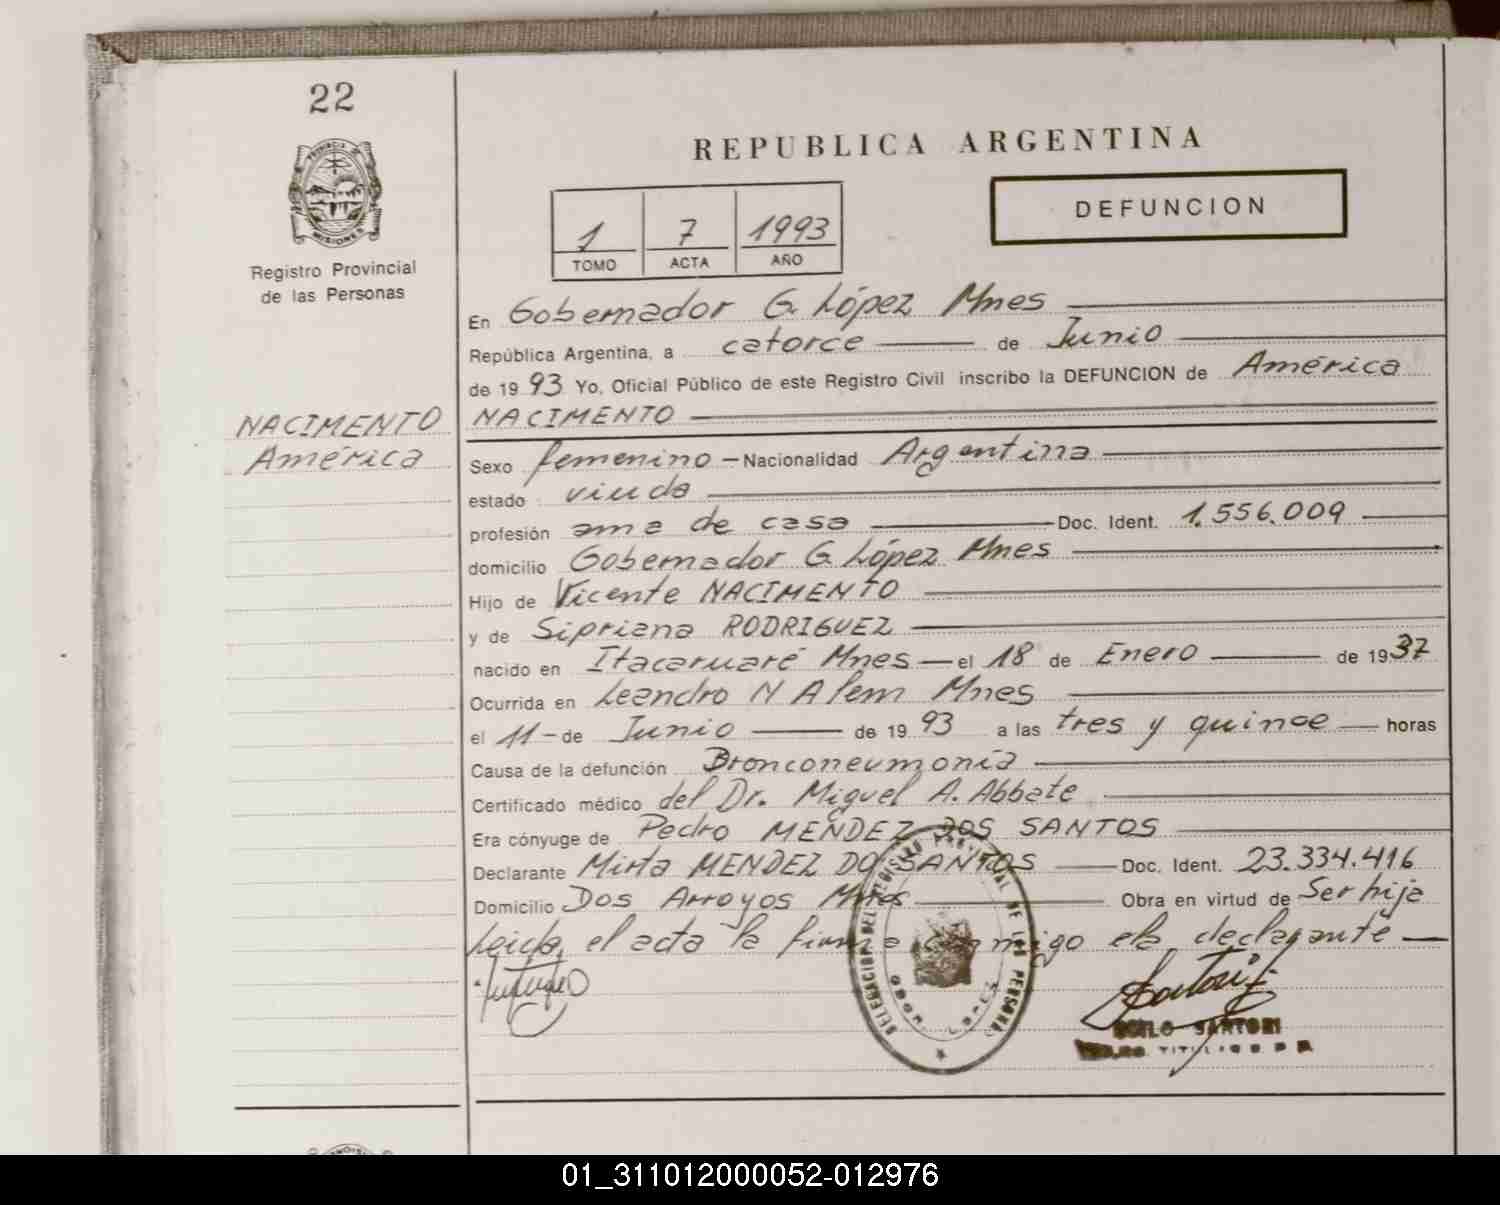 22
PROVINCIA DE
MISIONES
Registro Provincial
de las Personas
NACIMENTO
América
REPUBLICA ARGENTINA
1 7 1993
TOMO ACTA AÑO
DEFUNCION
En Gobernador G. López Mnes
República Argentina, a catorce de Junio
de 1993 Yo, Oficial Público de este Registro Civil inscribo la DEFUNCION de América
NACIMENTO
Sexo femenino - Nacionalidad Argentina
estado viuda
profesión ama de casa Doc. Ident. 1.556.009
domicilio Gobernador G. López Mnes
Hijo de Vicente NACIMENTO
y de Sipriana RODRIGUEZ
nacido en Itacaruaré Mnes - el 18 de Enero de 1937
Ocurrida en Leandro N Alem Mnes
el 11 - de Junio de 1993 a las tres y quince horas
Causa de la defunción Bronconeumonía
Certificado médico del Dr. Miguel A. Abbate
Era cónyuge de Pedro MENDEZ DOS SANTOS
Declarante Mirta MENDEZ DO SANTOS Doc. Ident. 23.334.416
Domicilio Dos Arroyos Mnes Obra en virtud de Ser hija
Leida, el acta la firma conmigo ela declarante
DELEGACION DEL REGISTRO PROVINCIAL DE LAS PERSONAS
SANTORI
01_311012000052-012976